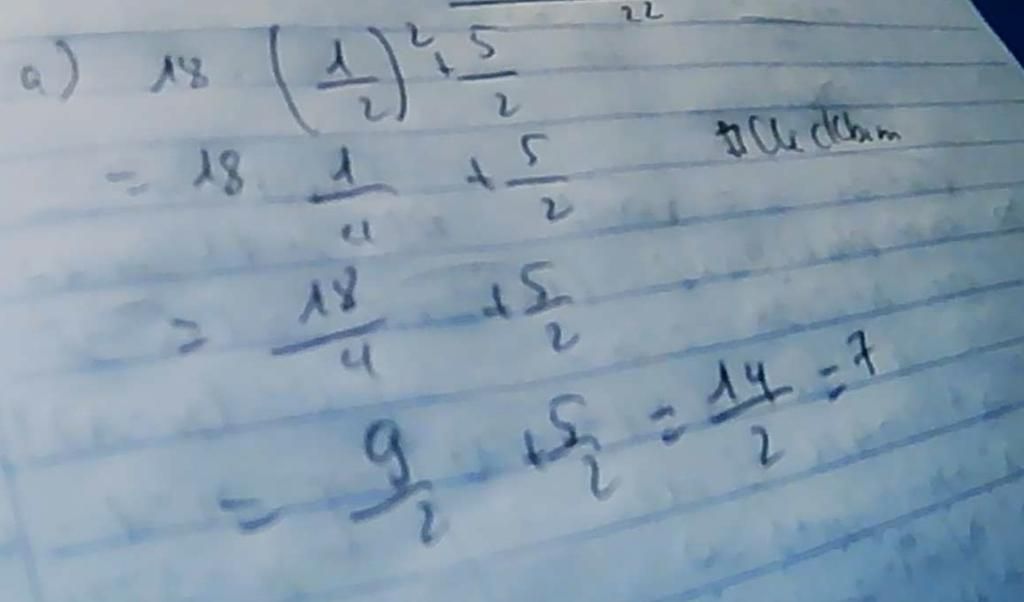 22
a) 18 (1/2)² + 5/2
= 18 1/4 + 5/2
= 18/4 + 5/2
= 9/2 + 5/2 = 14/2 = 7